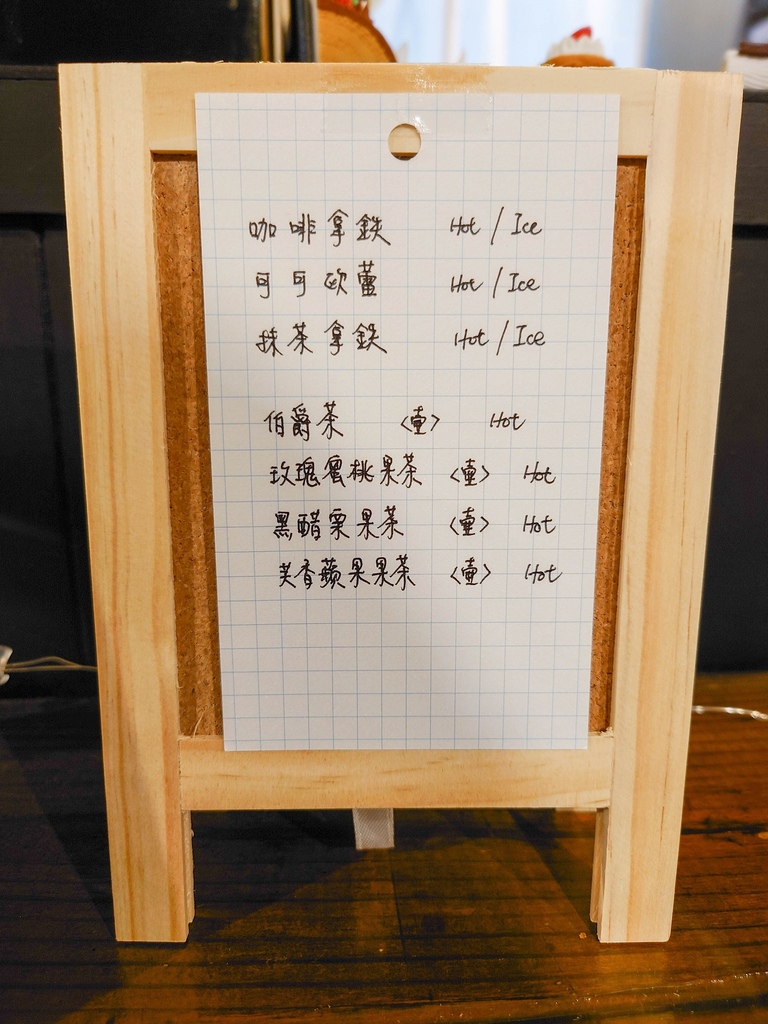 咖啡拿鉄 Hot / Ice
可可欧蕾 Hot / Ice
抹茶拿鉄 Hot / Ice
伯爵茶 <壺> Hot
玫瑰蜜桃果茶 <壺> Hot
黑醋栗果茶 <壺> Hot
芙香蘋果果茶 <壺> Hot